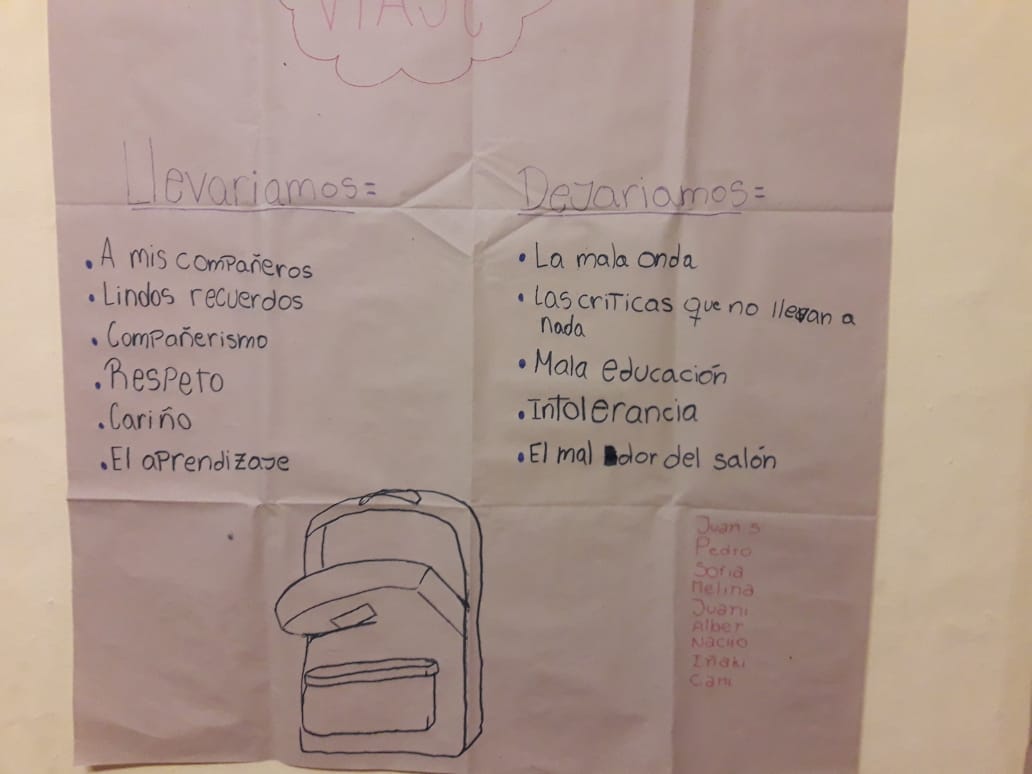 VIAJE
Llevariamos=
• A mis compañeros
• Lindos recuerdos
• Compañerismo
• Respeto
• Cariño
• El aprendizaje
Dejariamos=
• La mala onda
• Las criticas que no llevan a
nada
• Mala educación
• Intolerancia
• El mal odor del salón
Juan s
Pedro
Sofia
Melina
Juani
Alber
Nacho
Iñaki